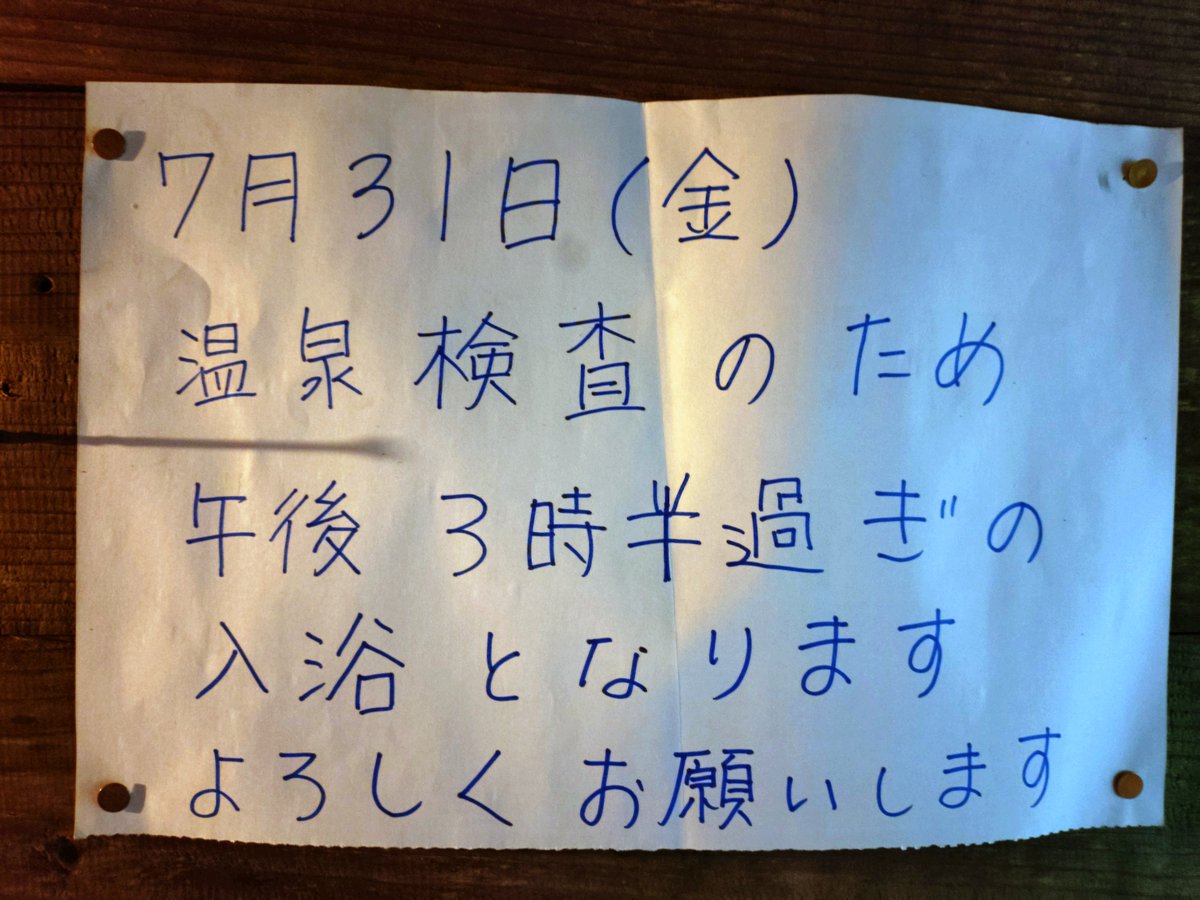 7月31日(金)
温泉検査のため
午後3時半過ぎの
入浴となります
よろしくお願いします